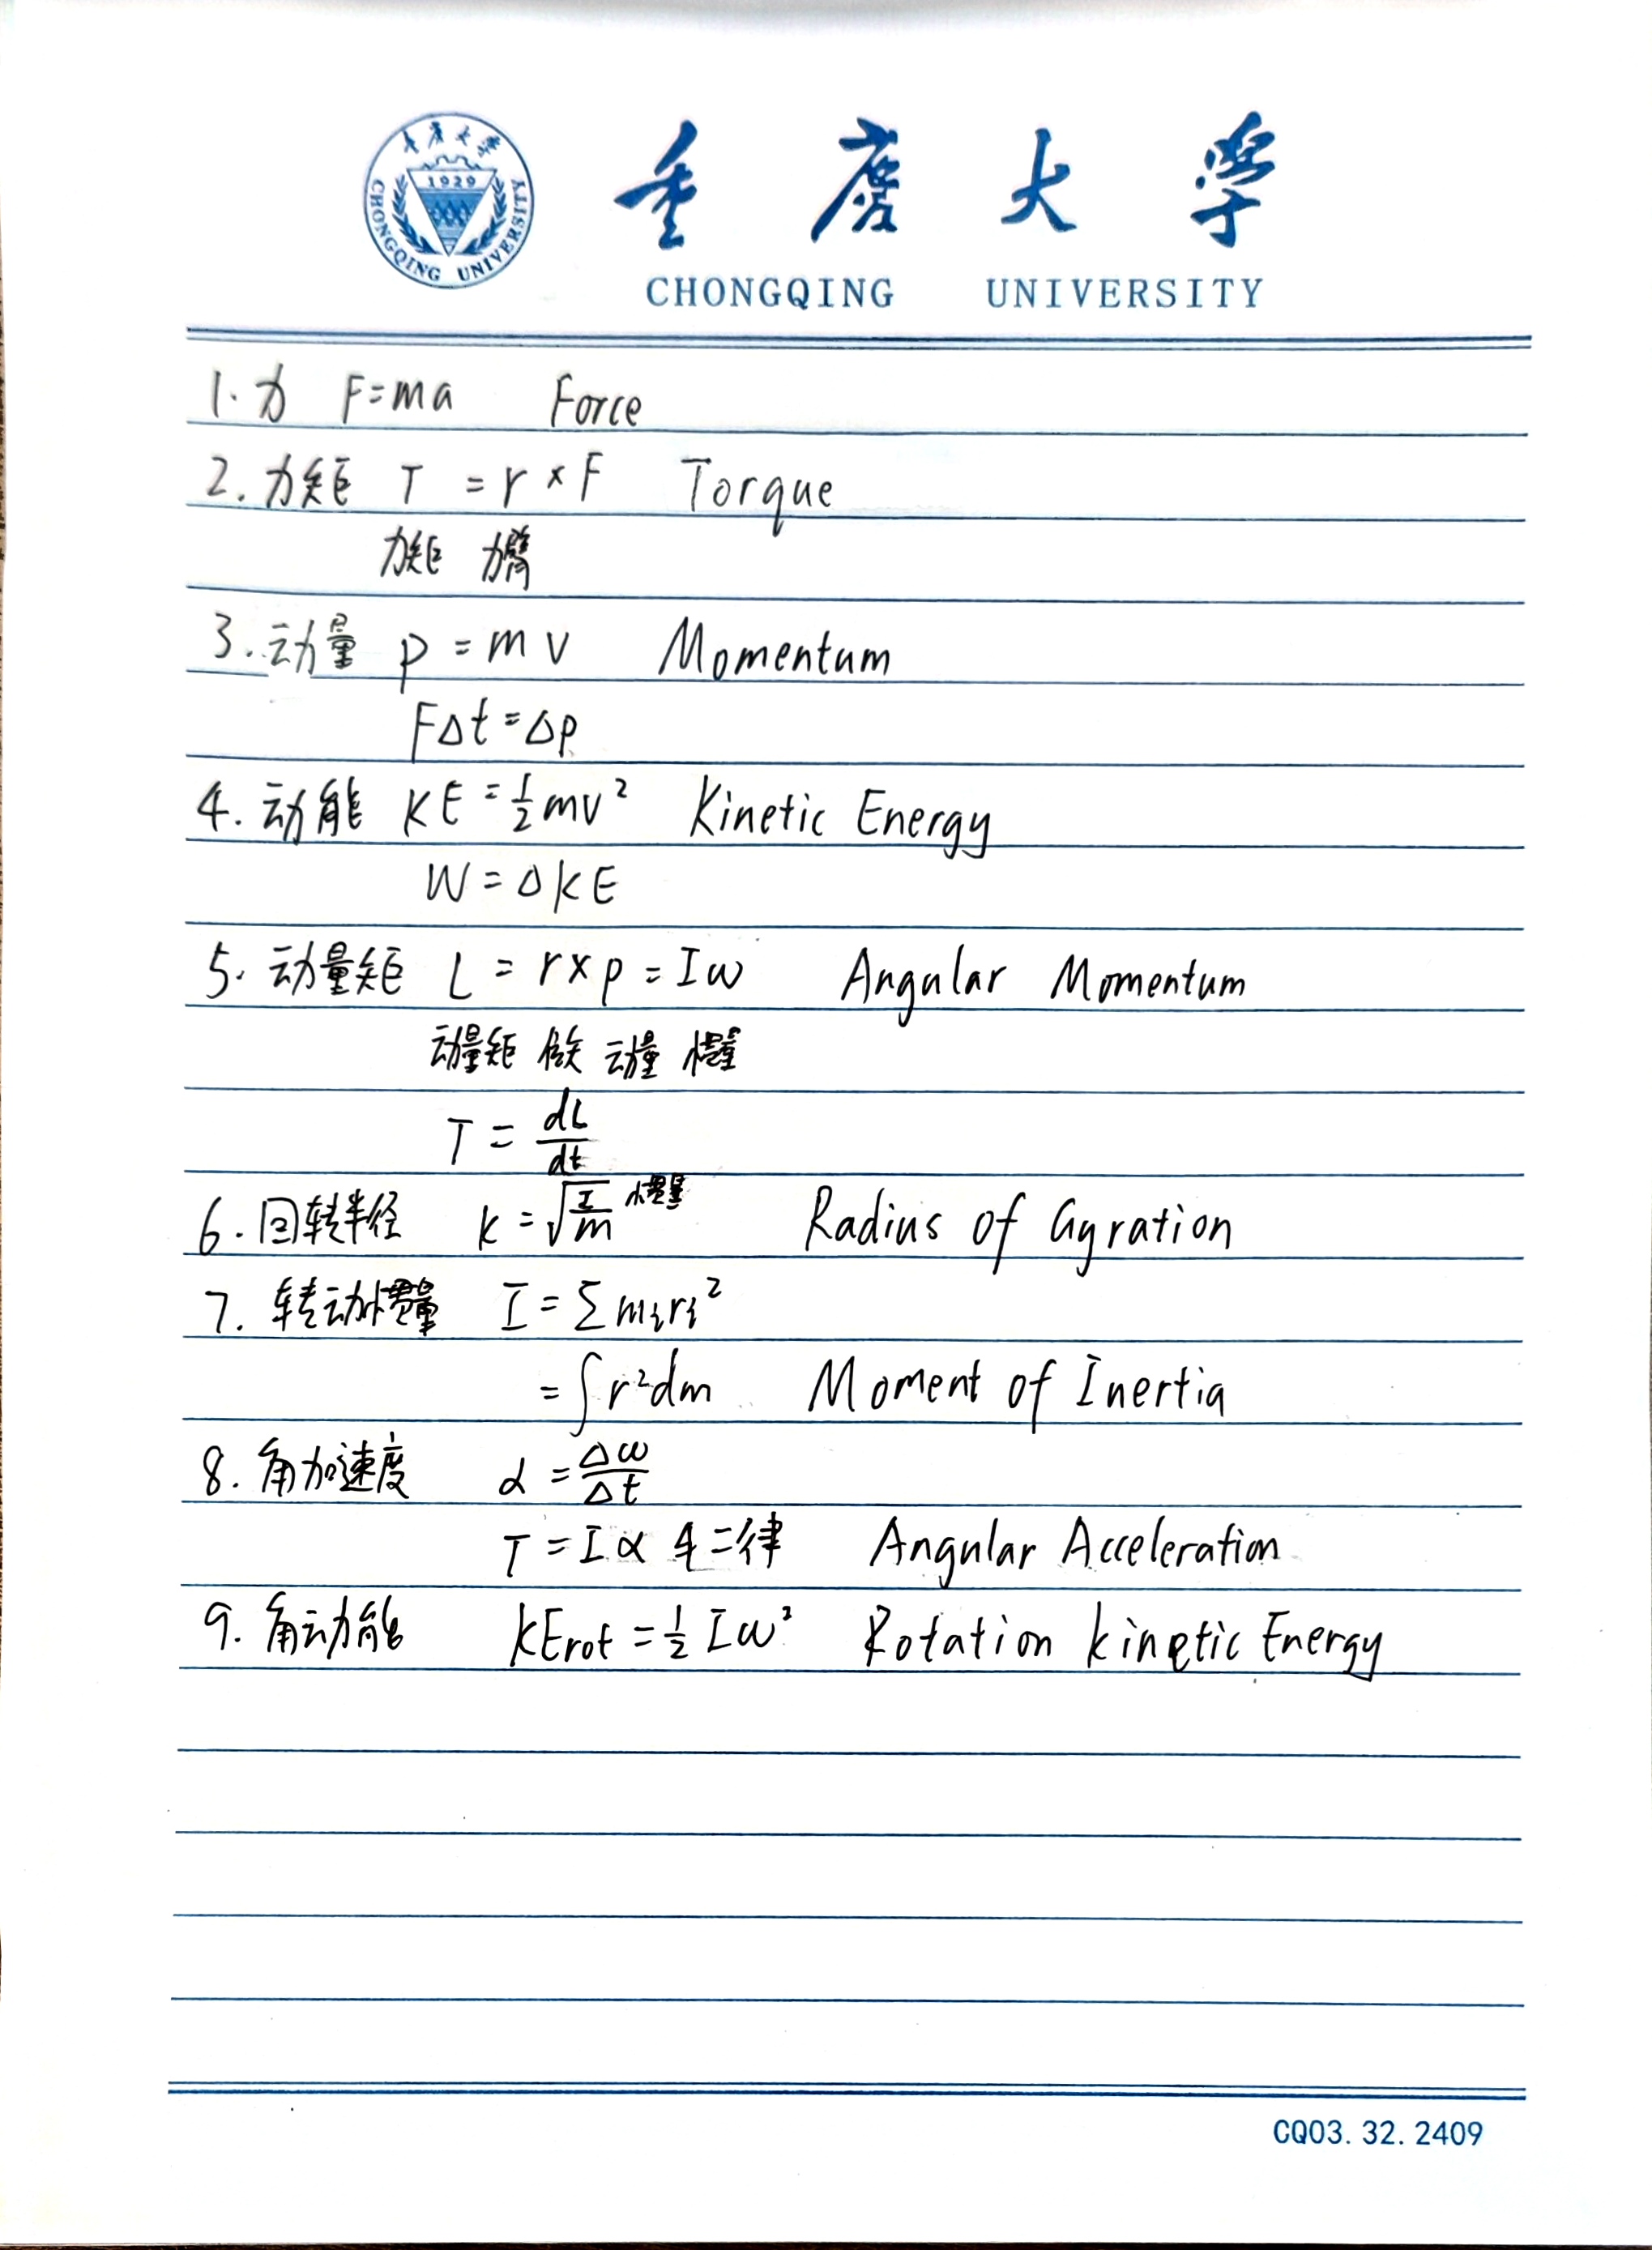 重庆大学
1929
CHONGQING UNIVERSITY
重庆大学
CHONGQING UNIVERSITY
1. 力 F=ma Force
2. 力矩 T = r × F Torque
力矩 力臂
3. 动量 p = m v Momentum
FΔt=Δp
4. 动能 KE=½mv² Kinetic Energy
W=ΔKE
5. 动量矩 L = r×p=Iω Angular Momentum
动量矩 动量 惯量
T = dL/dt
6. 回转半径 k=√(I/m) 惯量 Radius of Gyration
7. 转动惯量 I=Σmᵢrᵢ²
=∫r²dm Moment of Inertia
8. 角加速度 α=Δω/Δt
T=Iα 牛二律 Angular Acceleration
9. 角动能 KErot=½Iω² Rotation kinetic Energy
CQ03.32.2409